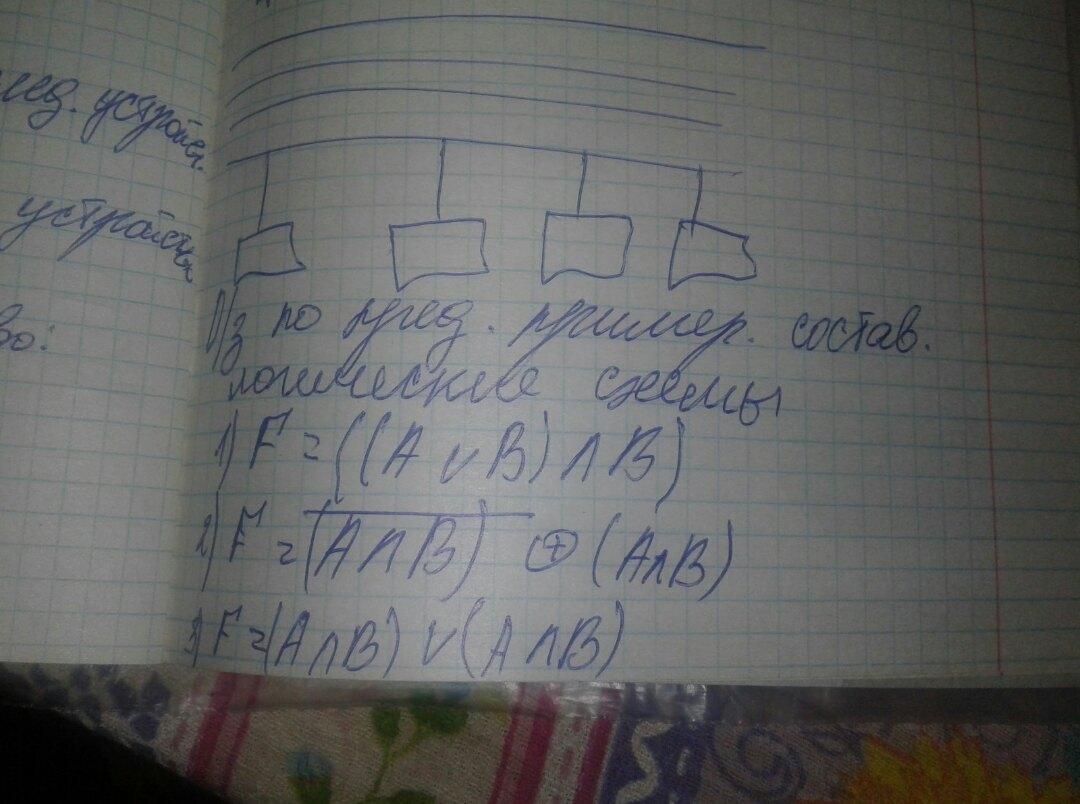 след. устройст.
устройства
во:
Д/з по пред. пример. состав.
логические схемы
1) F = ((A ∨ B) ∧ B)
2) F = \overline{(A ∧ B)} ⊕ (A ∧ B)
3) F = (A ∧ B) ∨ (A ∧ B)